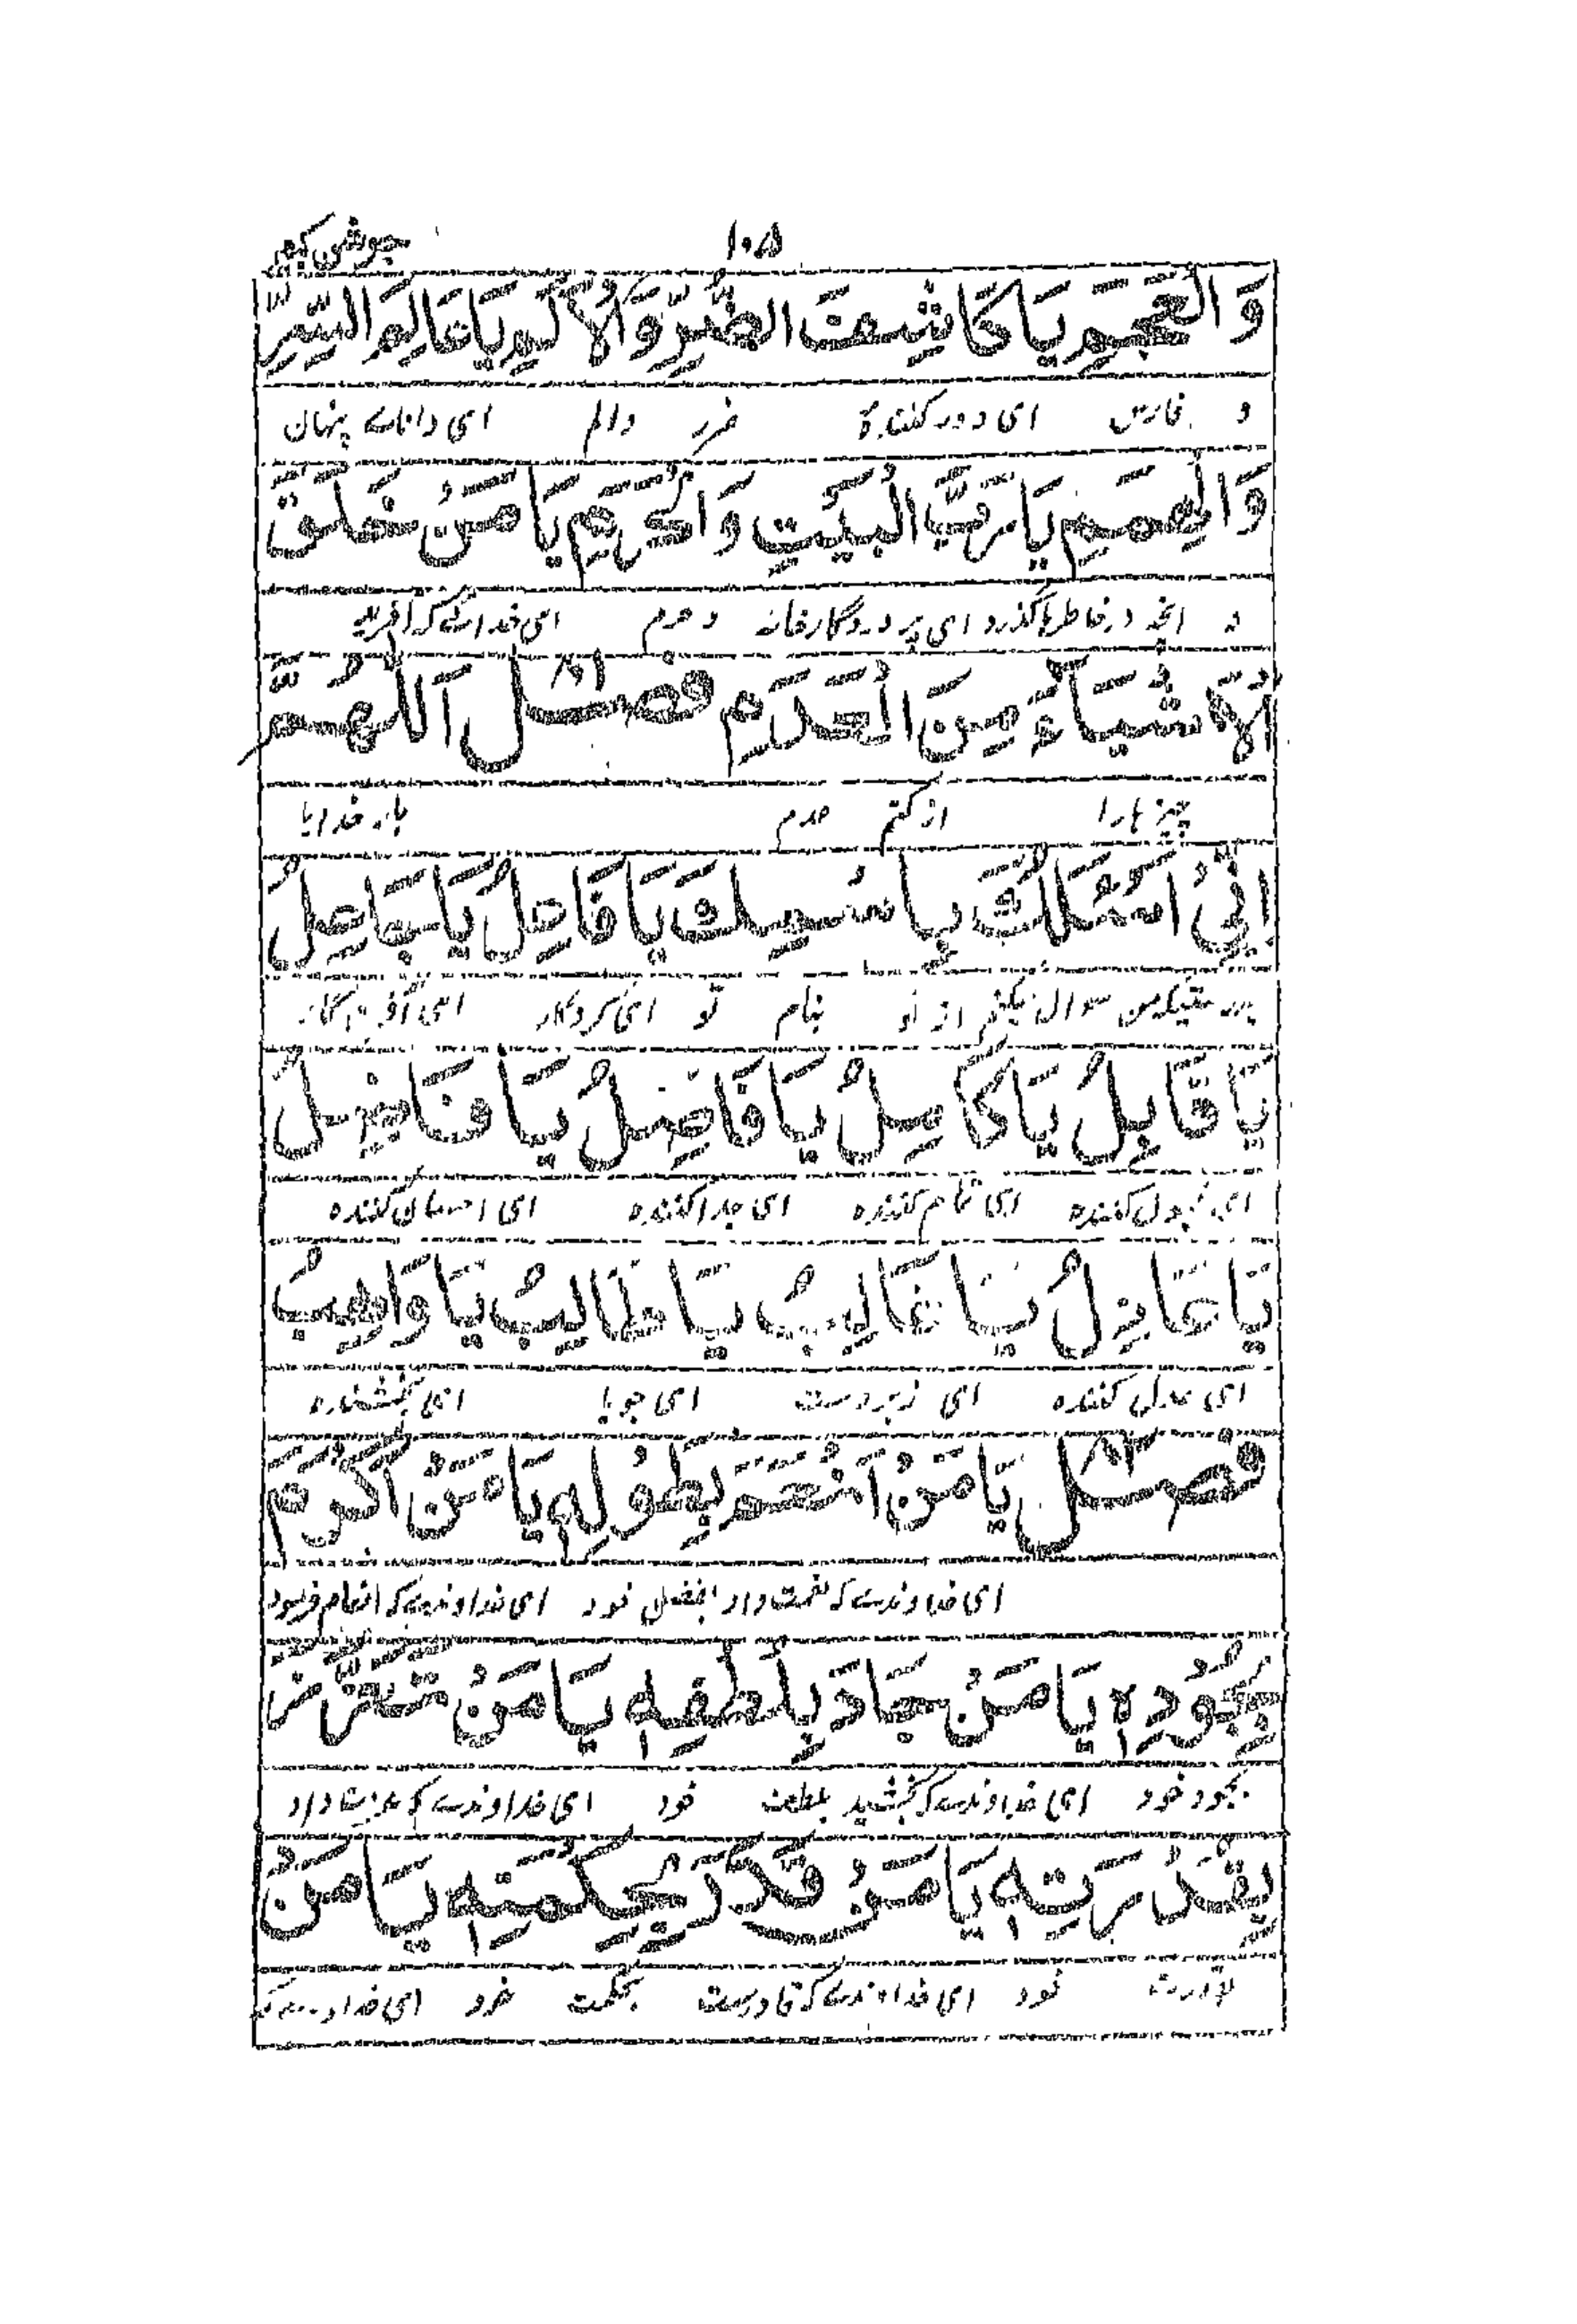 ۱۰۵ جوشن کبیر
وَالْعَجَمِ يَا كَاشِفَ الضُّرِّ وَالْأَلَمِ يَا عَالِمَ السِّرِّ
و فارس ای دور کنندهٔ ضرر والم ای دانای پنهان
وَالْهِمَمِ يَا رَبَّ الْبَيْتِ وَالْحَرَمِ يَا مَنْ خَلَقَ
و انچه در خاطرها گذرد ای پروردگار خانه و حرم ای خدائے که آفرید
الْأَشْيَاءَ مِنَ الْعَدَمِ فصل اَللّٰهُمَّ
چیزها را از کتم عدم بار خدایا
اِنِّيْ اَسْئَلُكَ بِاسْمِكَ يَا فَاعِلُ يَا جَاعِلُ
بدرستیکه من سوال میکنم از تو بنام تو ای کردگار ای آفریدگار
يَا قَابِلُ يَا كَامِلُ يَا فَاصِلُ يَا
ای قبول کننده ای تمام کننده ای جدا کننده ای احسان کننده
يَا عَادِلُ يَا غَالِبُ يَا طَالِبُ يَا وَاهِبُ
ای عدل کننده ای زبردست ای جویا ای بخشنده
فصل يَا مَنْ اَنْعَمَ بِطَوْلِهِ يَا مَنْ اَكْرَمَ
ای خداوندے که نعمت داد بفضل خود ای خداوندے که انعام فرمود
بِجُوْدِهِ يَا مَنْ جَادَ بِلُطْفِهِ يَا مَنْ تَعَزَّزَ
بجود خود ای خداوندے که بخشید بلطف خود ای خداوندے که
بِقُدْرَتِهِ يَا مَنْ قَدَّرَ بِحِكْمَتِهِ يَا مَنْ
بقدرت خود ای خداوندے که بحکمت خود ای خداوندے که